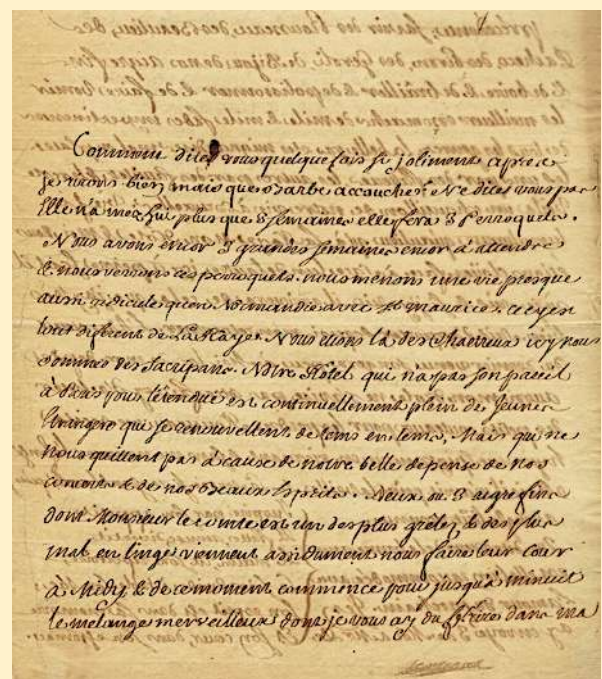 Comment dites vous quelque fois si joliment apres
je n'irons bien mais que barbe accouche. Ne dites vous pas
Elle n'a mezhui plus que 5 semaines elle fera 3 Perroquets.
Nous avons encor 3 grandes semaines encor à attendre
& nous verrons ces perroquets. nous menons une vie presque
aussi ridicule qu'en Normandie avec St maurice. cecy est
tout different de La Haye. Nous etions là des Chartreux icy nous
sommes des Sacripans. Notre Hôtel qui n'a pas son pareil
à Paris pour l'étendue est continuellement plein de Jeunes
Etrangers qui se renouvellent de tems en tems, Mais qui ne
nous quittent pas à cause de notre belle depense de nos
& de nos Beaux Esprits. Deux ou 3 aigrefins
dont Monsieur le comte est un des plus grêlez & des plus
mal en linge viennent assidument nous faire leur cour
à Midy & de ce moment commence pour jusqu'a minuit
le mélange merveilleux dont je vous ay du dans ma